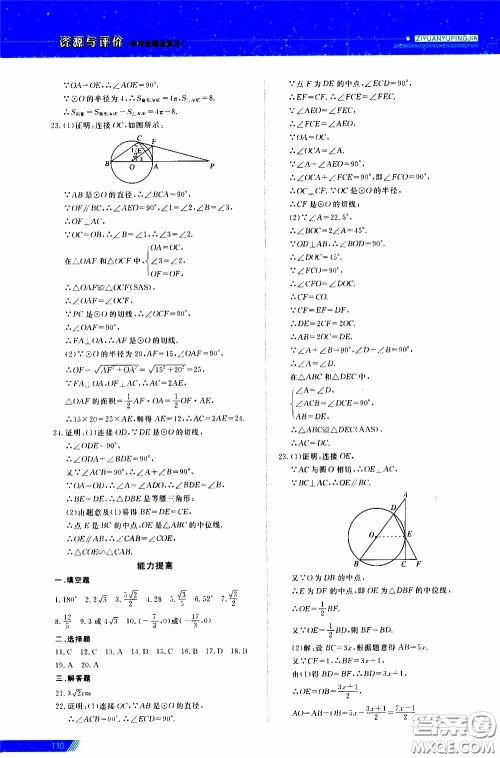 资源与评价
ZIYUANYUPINGJIA
∵OA=OE,∴∠AOE=90°.
∵⊙O的半径为4,
23.(1)证明:连接OC,如图所示:
∵AB是⊙O的直径,∴∠BCA=90°.
∵OF∥BC,∴∠AEO=90°,∠1=∠2,∠B=∠3.
∴OF⊥AC.
∵OC=OB,∴∠B=∠OCB.∴∠3=∠B.
在△OAF和△OCF中,
OA=OC,
∠3=∠2,
OF=OF,
∴△OAF≌△OCF(SAS).
∴∠OAF=∠OCF.
∵PC是⊙O的切线,∴∠OCF=90°.
∴∠OAF=90°.
∴FA⊥OA,∴FA是⊙O的切线.
(2)∵⊙O的半径为20,AF=15,∠OAF=90°,
∴OF=√(AF²+OA²)=√(15²+20²)=25.
∵FA⊥OA,OF⊥AC,∴AC=2AE.
△OAF的面积=1/2 AF·OA=1/2 OF·AE.
∴15×20=25×AE,解得AE=12.∴AC=2AE=24.
24.证明:(1)连接OD.∵DE是⊙O的切线,
∴∠ODE=90°.
∴∠ODA+∠BDE=90°.
又∵∠ACB=90°,∴∠A+∠B=90°.
∵OA=OD,∴∠A=∠ODA.∴∠BDE=∠B.
∴BE=DE,∴△DBE是等腰三角形.
(2)由题意及(1)易得BE=DE=CE.
∴点E是BC的中点,OE是△ABC的中位线.
∴OE∥AB,∴∠COE=∠A.
∴△COE∽△CAB.
能力提高
一、填空题
1.180° 2.2√3 3.5√2/2 4.28 5.√3/2 6.52° 7.
8.12/5 9.3或4√3 10.(-7/3,0)或(-17/3,0)
二、选择题
11.C 12.C 13.A 14.C 15.D 16.B 17.D 18.B
19.A 20.A
三、解答题
21.3√2cm
22.证明:(1)连接OC,∵DE是⊙O的直径,
∴∠ACB=90°,∴∠ECD=90°.
∵点F为DE的中点,∴CF=EF.
∴EF=CF.∴∠FCE=∠FEC.
∵∠FEC=∠AEO,
∴∠FCE=∠AEO.
∵OA=OC,
∴∠OCA=∠A.
∵∠A+∠AEO=90°,
∴∠OCA+∠FCE=90°.即∠FCO=90°.
∴OC⊥CF.∵OC是⊙O的半径,
∴CF是⊙O的切线.
(2)∵∠A=22.5°,
∴∠BOC=2∠A=45°.
∵∠FCO=90°,
∴DE=2CF=2OC.
∴AB=2OC=DE.
∵∠A+∠B=∠B+∠D=90°,
∴∠A=∠D.
在△ABC和△DEC中,
∠A=∠D,
∠ACB=∠DCE=90°,
AB=DE,
∴△ABC≌△DEC(AAS).
23.(1)证明:连接OE,
∵AC与圆O相切,∴OE⊥AC.
∵BC⊥AC,∴OE∥BC.
又∵O为DB的中点,
∴E为DF的中点,即OE为△DBF的中位线.
∴OE=1/2 BF.
又∵OE=1/2 BD,∴BF=BD.
(2)解:设BC=3x,根据题意得AB=5x.
又∵CF=1,∴BF=3x+1.
由(1)得BD=BF,∴BD=3x+1.
∴OE=OB=(3x+1)/2.
AO=AB-OB=5x-(3x+1)/2=(7x-1)/2.
110
答案圈
MXQE.COM